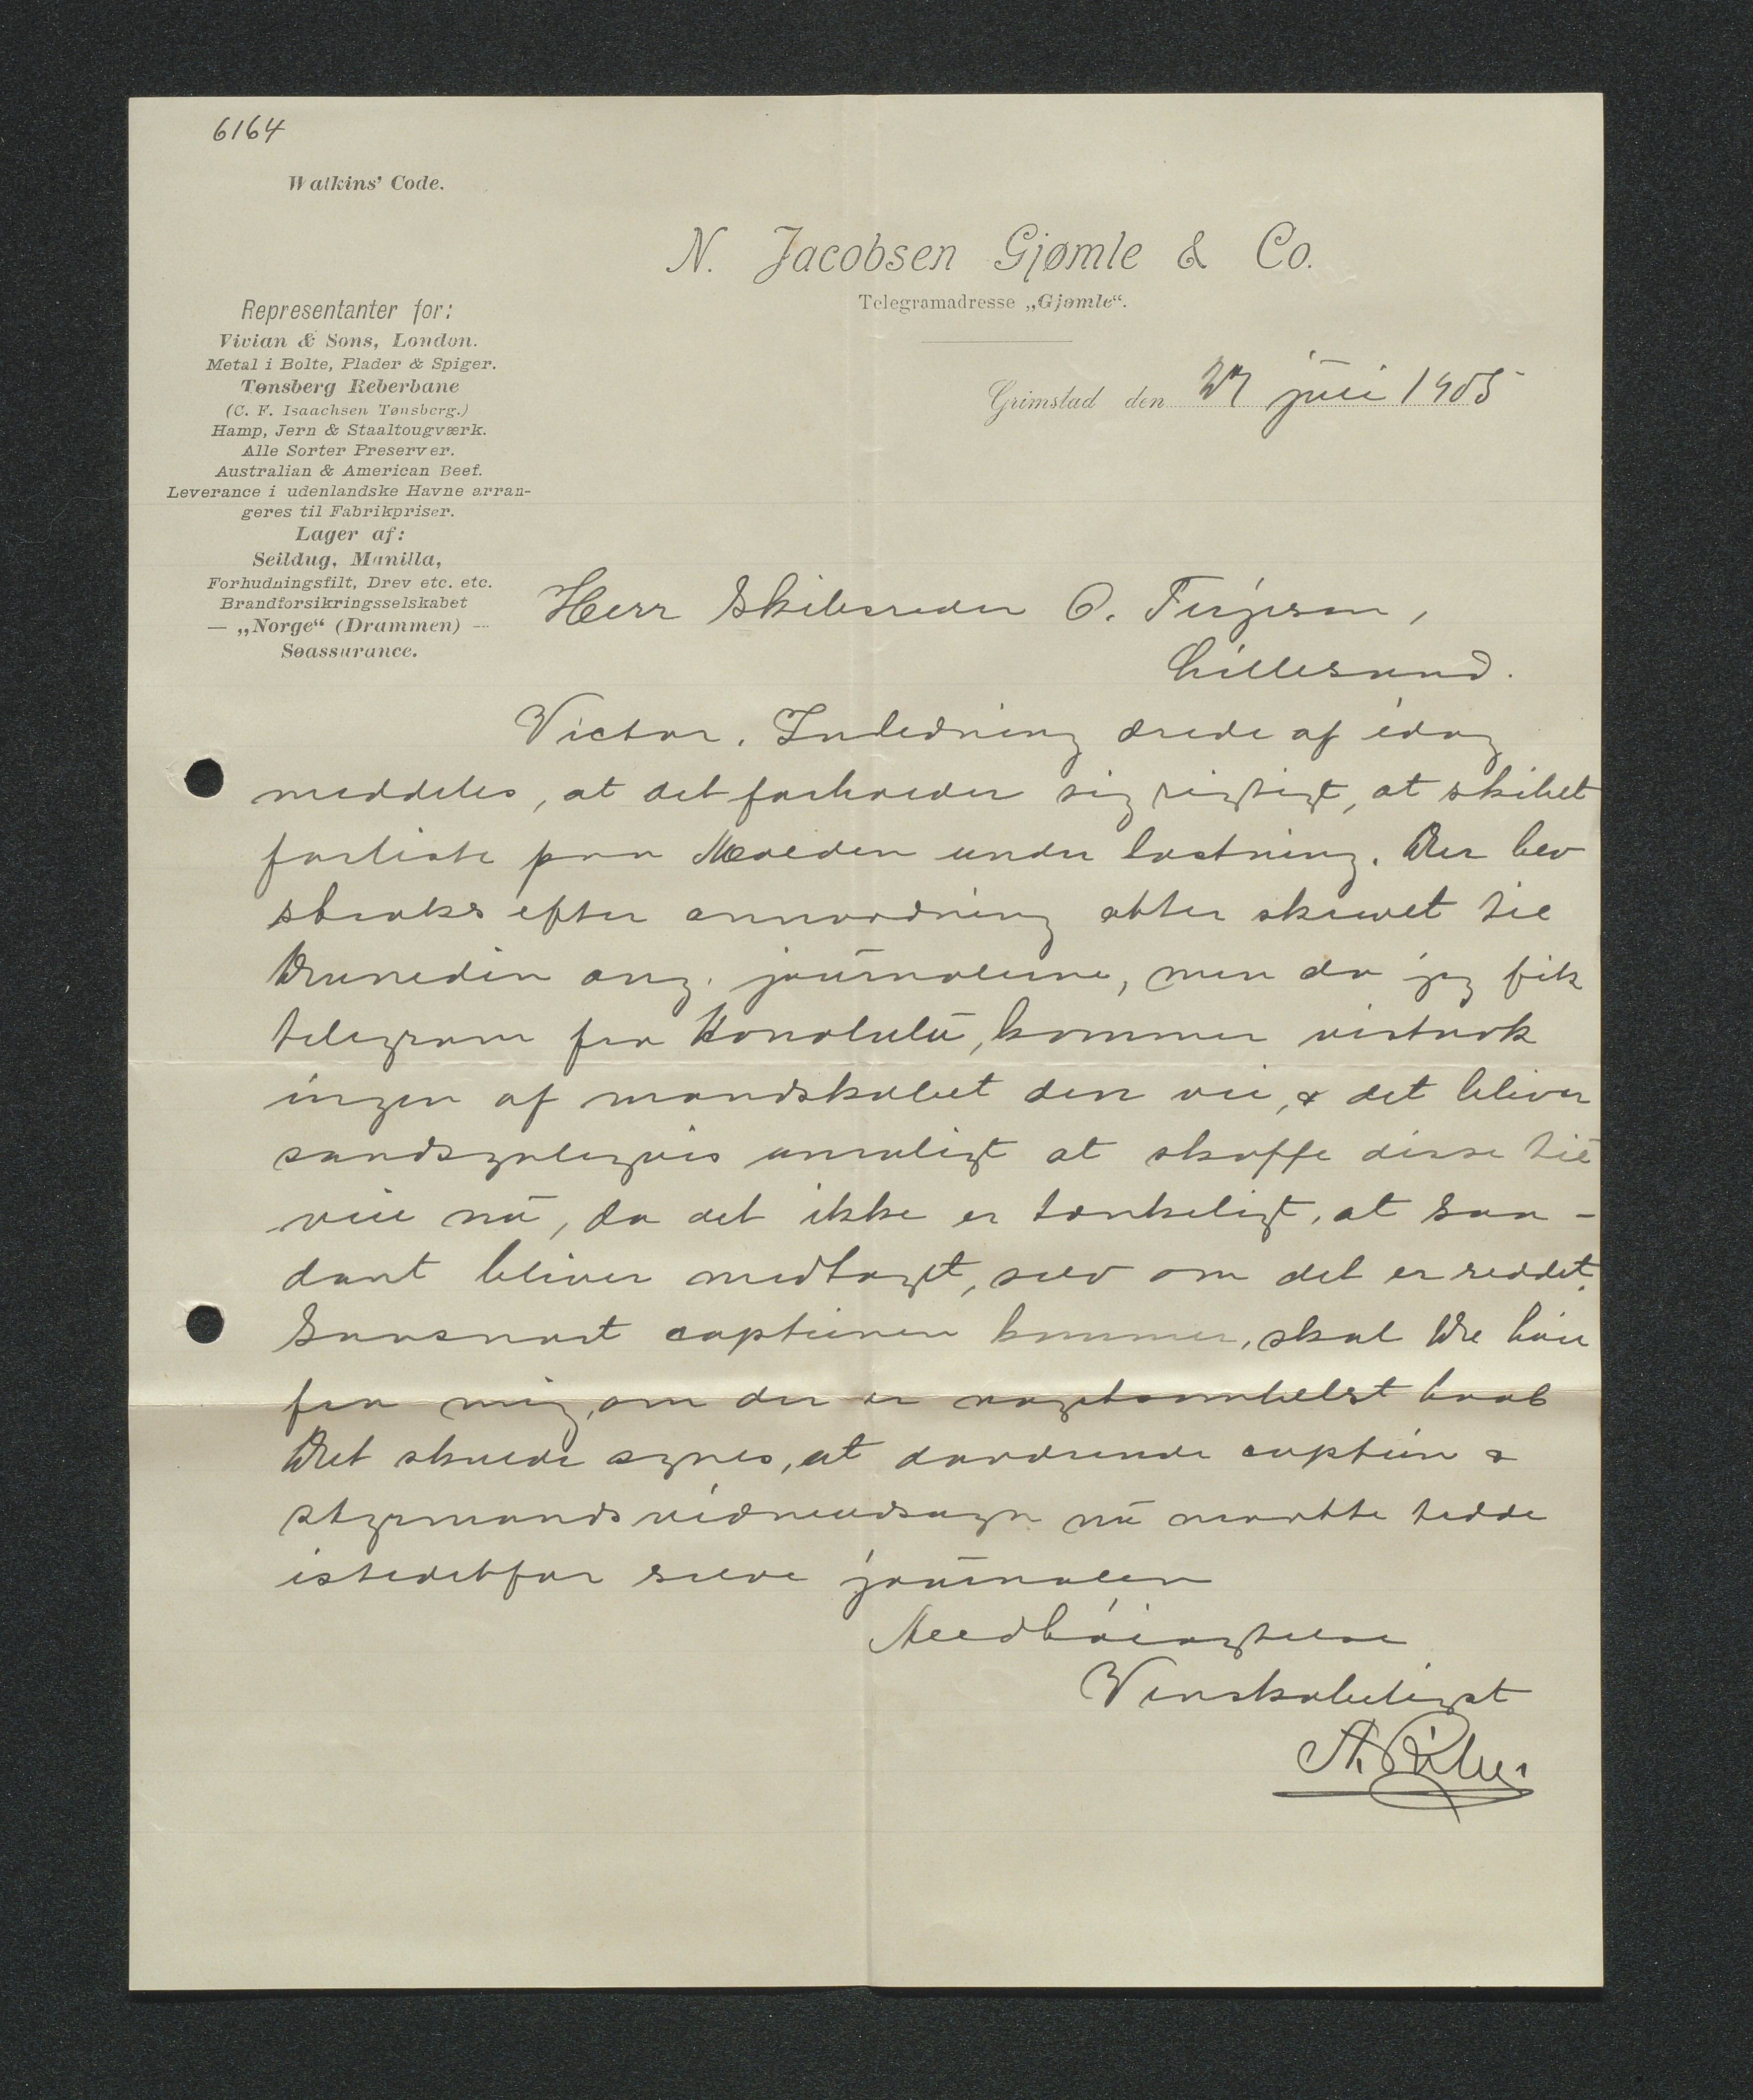 6164
Watkins' Code.
N. Jacobsen Gjømle & Co.
Telegramadresse „Gjømle“.
Representanter for:
Vivian & Sons, London.
Metal i Bolte, Plader & Spiger.
Tønsberg Reberbane
(C. F. Isaachsen Tønsberg.)
Hamp, Jern & Staaltougværk.
Alle Sorter Preserver.
Australian & American Beef.
Leverance i udenlandske Havne arran-
geres til Fabrikpriser.
Lager af:
Seildug, Manilla,
Forhudningsfilt, Drev etc. etc.
Brandforsikringsselskabet
— „Norge“ (Drammen) —
Søassurance.
Grimstad den 27 juli 1905
Herr Skibsreder O. Terjesen,
Lillesand.
Victor. Inledning ærede af idag
meddeles, at det forholder sig rigtigt, at skibet
forliste paa Malden under lastning. Der blev
straks efter annordning atter skrevet til
Dunedin ang. journalerne, men da jeg fik
telegram fra Honolulu, kommer vistnok
ingen af mandskabet den vei, & det bliver
sandsynligvis umuligt at skaffe disse til
veie nu, da det ikke er tænkeligt, at saa-
dant bliver medtaget, selv om det er reddet.
Saasnart capteinen kommer, skal De høre
fra mig, om der er nogetsomhelst haab
Det skulde synes, at daværende captein &
styrmands vidneudsagn nu maatte trædde
istedetfor selve journalen
Med høiagtelse
Venskabeligst